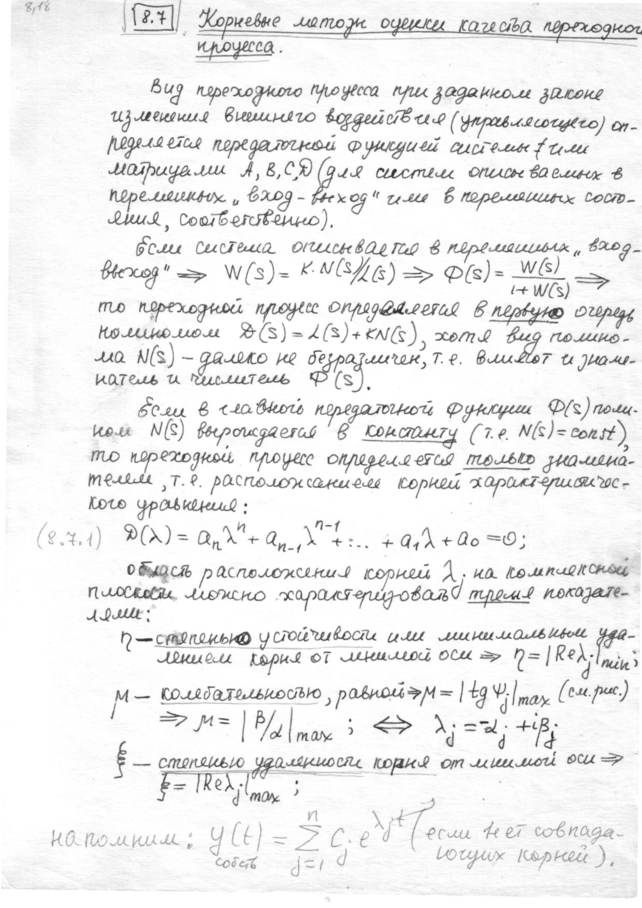 8,18
8.7 Корневые методы оценки качества переходного
процесса.
Вид переходного процесса при заданном законе
изменения внешнего воздействия (управляющего) оп-
ределяется передаточной функцией системы или
матрицами A, B, C, D (для систем описываемых в
переменных „вход-выход" или в переменных состо-
яния, соответственно).
Если система описывается в переменных „вход-
выход" ⇒ W(s) = K·N(s)/L(s) ⇒ Φ(s) = W(s)/(1+W(s)) ⇒
то переходной процесс определяется в первую очередь
полиномом D(s) = L(s) + KN(s), хотя вид полино-
ма N(s) – далеко не безразличен, т.е. влияют и знаме-
натель и числитель Φ(s).
Если в главного передаточной функции Φ(s) поли-
ном N(s) вырождается в константу (т.е. N(s) = const),
то переходной процесс определяется только знамена-
телем, т.е. расположением корней характеристичес-
кого уравнения:
(8.7.1) D(λ) = aₙλⁿ + aₙ₋₁λⁿ⁻¹ + ... + a₁λ + a₀ = 0;
область расположения корней λⱼ на комплексной
плоскости можно характеризовать тремя показате-
лями:
η – степенью устойчивости или минимальным уда-
лением корня от мнимой оси ⇒ η = |Reλⱼ|min;
μ – колебательностью, равной ⇒ μ = |tgψⱼ|max (см. рис.)
⇒ μ = |β/α|max ; ⇔ λⱼ = -αⱼ + iβⱼ
ξ – степенью удаленности корня от мнимой оси ⇒
ξ = |Reλⱼ|max ;
напомним: y(t)собств = Σⱼ₌₁ⁿ Cⱼ e^λⱼt (если нет совпада-
ющих корней).